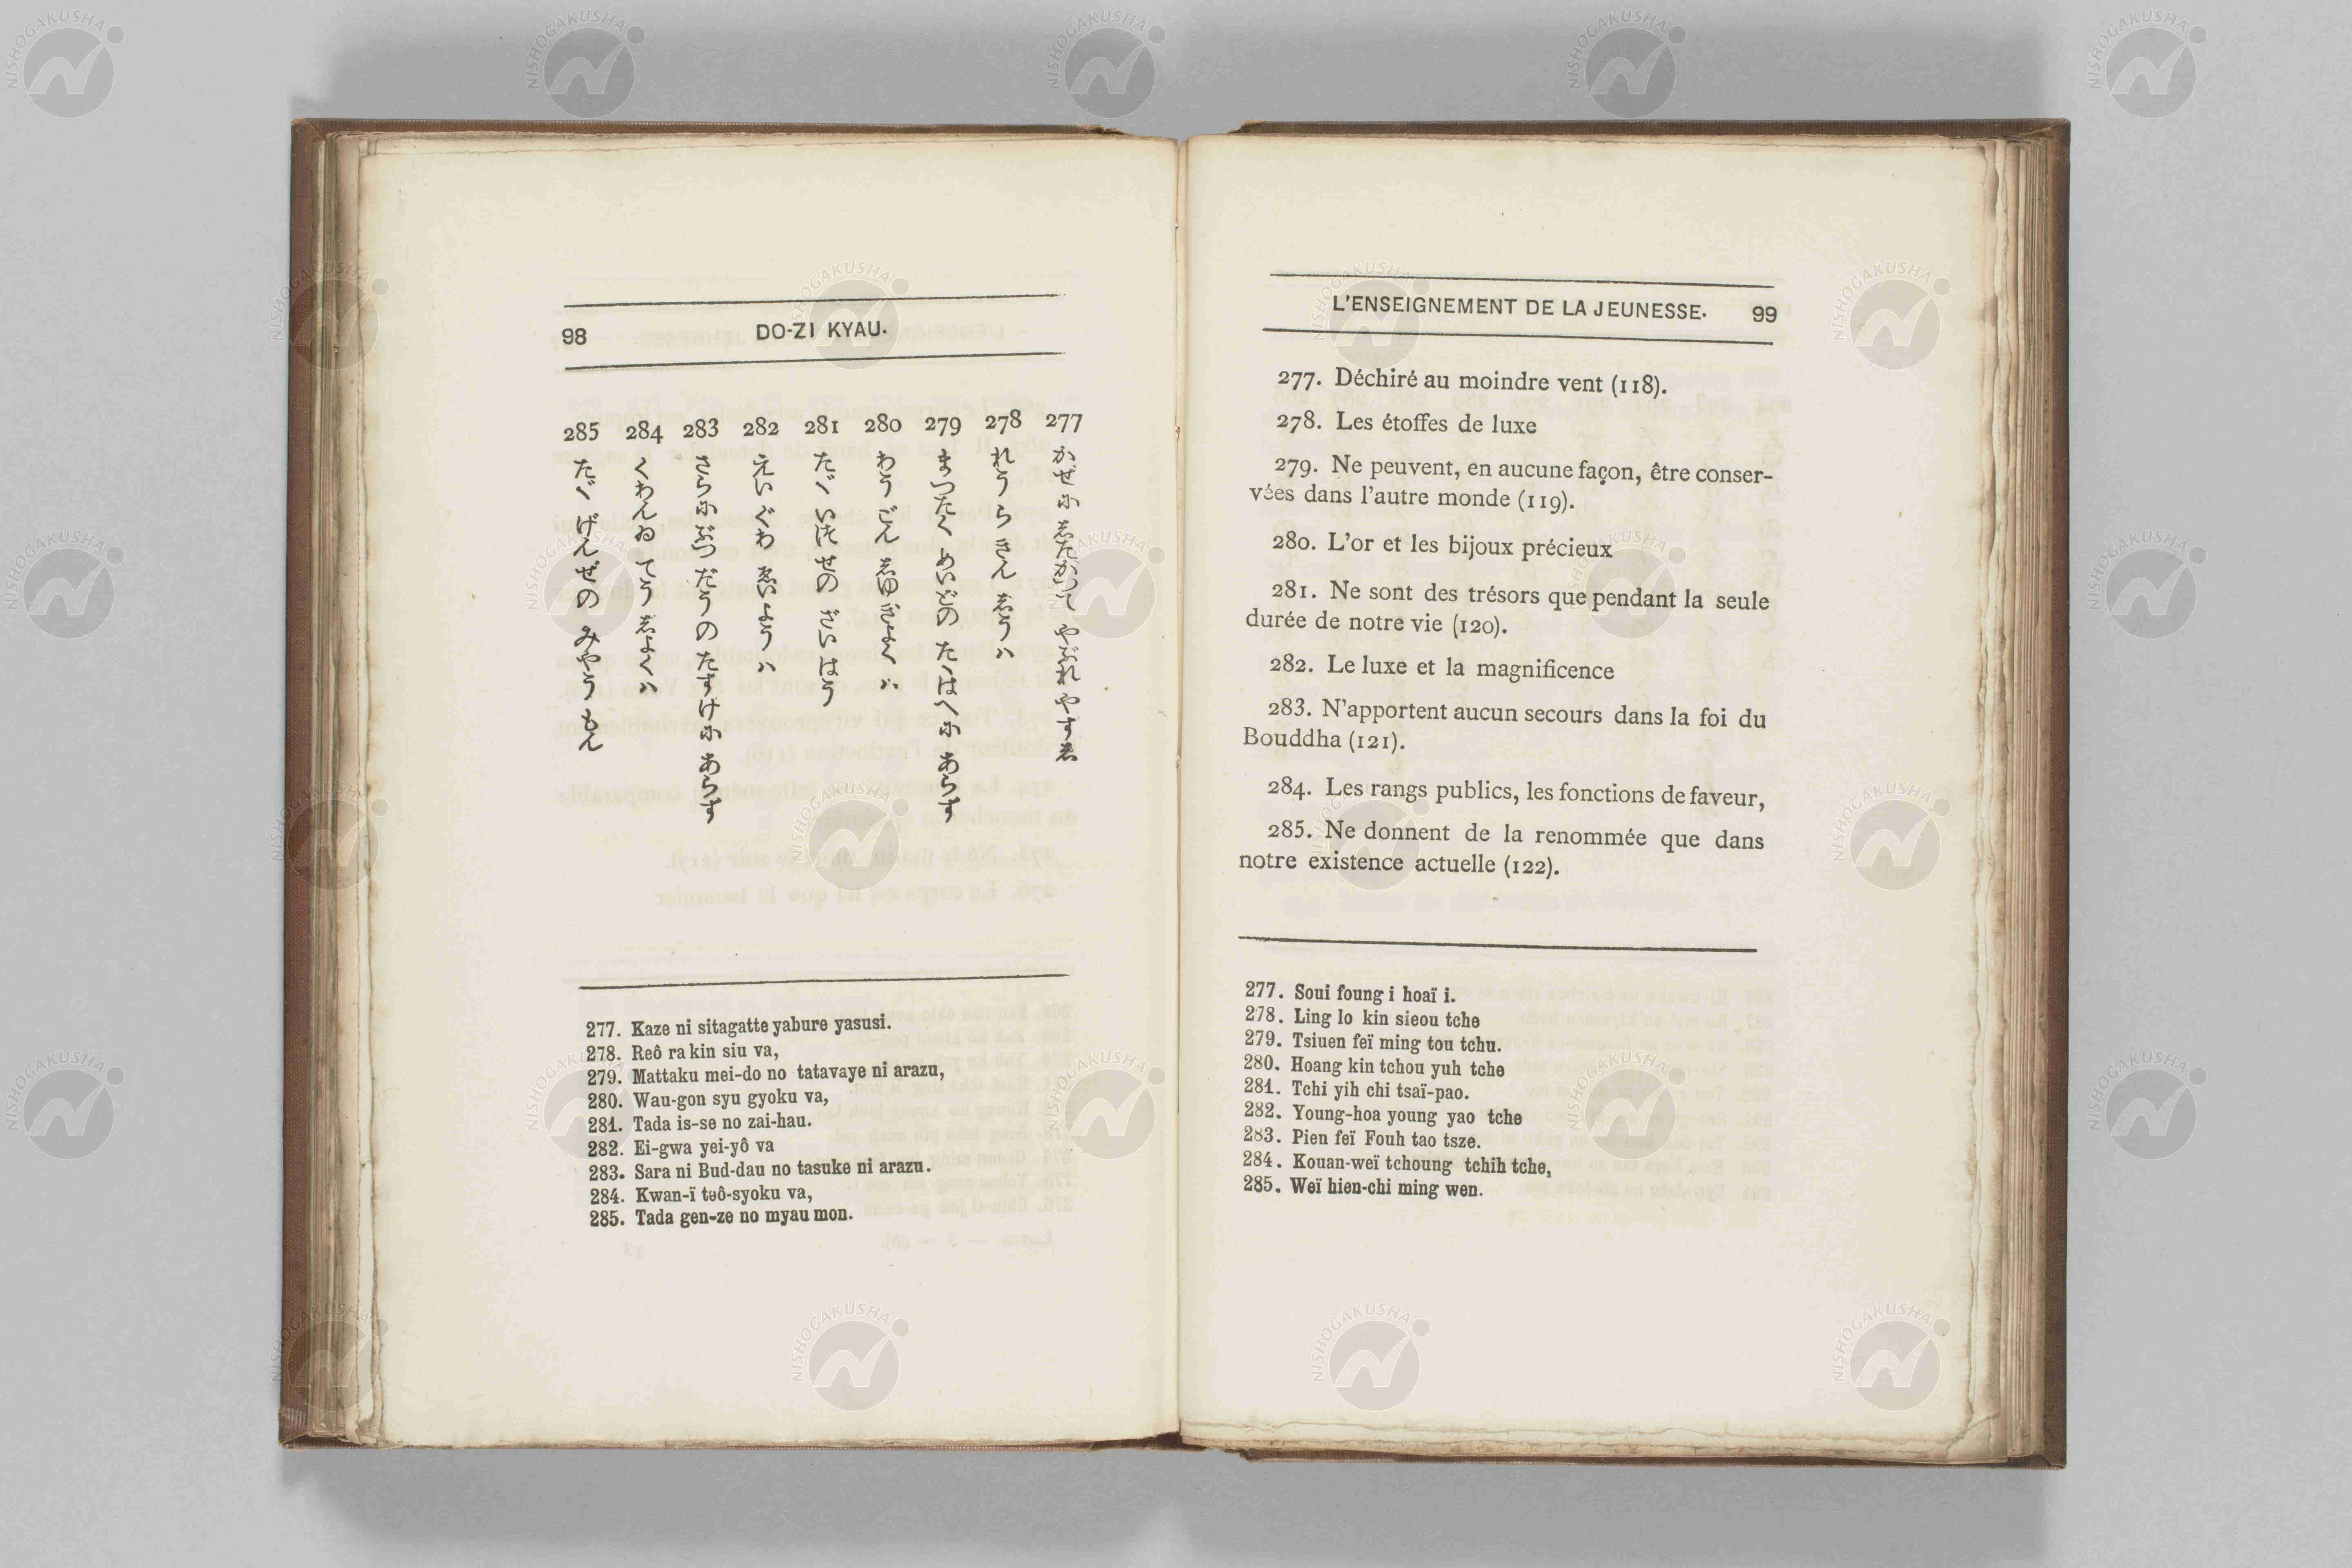 98 DO-ZI KYAU.
277 かぜに志たがつて やぶれ やす志
278 れう ら きん 志うハ
279 まつたく めいどの たくはへに あらず
280 わう ごん 志ゆ ぎよくハ
281 たゞ いつせの ざい はう
282 えい ぐわ ゑいようハ
283 さらに ぶつ だうの たすけに あらず
284 くわんゐ てう 志よくハ
285 たゞ げんぜの みやうもん
277. Kaze ni sitagatte yabure yasusi.
278. Reô ra kin siu va,
279. Mattaku mei-do no tatavaye ni arazu,
280. Wau-gon syu gyoku va,
281. Tada is-se no zai-hau.
282. Ei-gwa yei-yô va
283. Sara ni Bud-dau no tasuke ni arazu.
284. Kwan-ï teô-syoku va,
285. Tada gen-ze no myau mon.
L'ENSEIGNEMENT DE LA JEUNESSE. 99
277. Déchiré au moindre vent (118).
278. Les étoffes de luxe
279. Ne peuvent, en aucune façon, être conser-
vées dans l'autre monde (119).
280. L'or et les bijoux précieux
281. Ne sont des trésors que pendant la seule
durée de notre vie (120).
282. Le luxe et la magnificence
283. N'apportent aucun secours dans la foi du
Bouddha (121).
284. Les rangs publics, les fonctions de faveur,
285. Ne donnent de la renommée que dans
notre existence actuelle (122).
277. Soui foung i hoaï i.
278. Ling lo kin sieou tche
279. Tsiuen feï ming tou tchu.
280. Hoang kin tchou yuh tche
281. Tchi yih chi tsaï-pao.
282. Young-hoa young yao tche
283. Pien feï Fouh tao tsze.
284. Kouan-weï tchoung tchih tche,
285. Weï hien-chi ming wen.
NISHOGAKUSHA